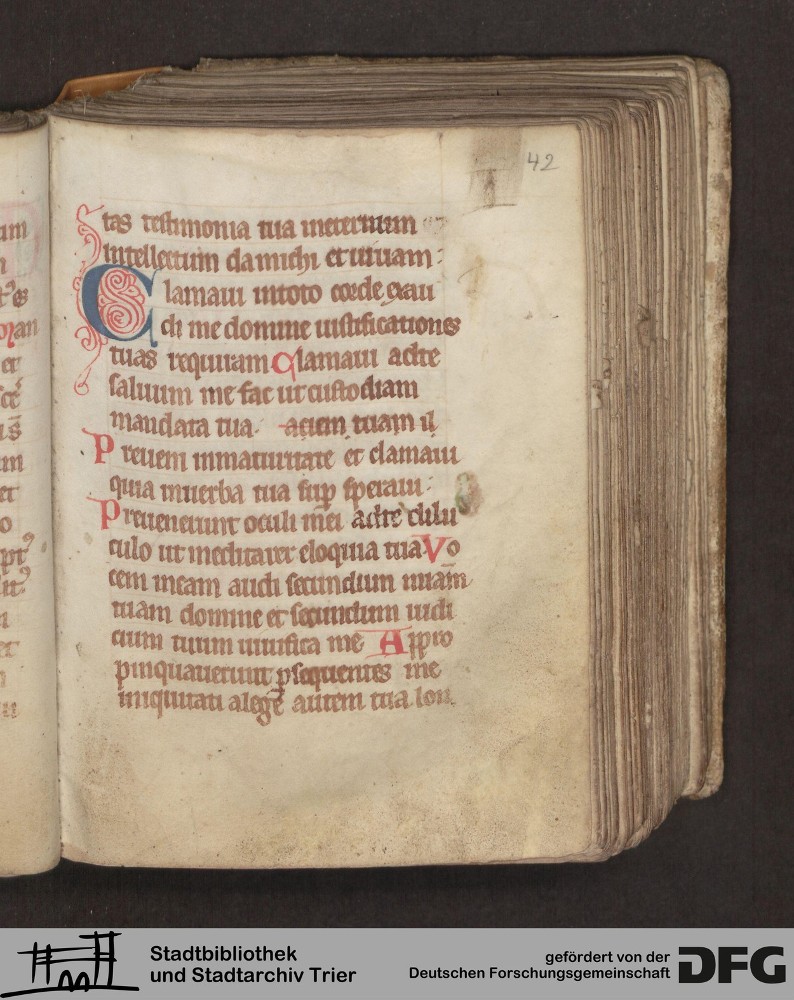 42
tas testimonia tua ineternum
intellectum damichi et uiuam:
Clamaui intoto corde exau
di me domine iustificationes
tuas requiram Clamaui adte
saluum me fac ut custodiam
mandata tua. tuam
Preueni inmaturitate et clamaui
quia inuerba tua sup speraui:
Preuenerunt oculi mei adte dilu
culo ut meditarer eloquia tua Vo
cem meam audi secundum miam
tuam domine et secundum iudi
cium tuum uiuifica me Appro
pinquauerunt psequentes me
iniquitati alege autem tua lon
um
n
et
o
Stadtbibliothek
und Stadtarchiv Trier
gefördert von der
Deutschen Forschungsgemeinschaft
DFG